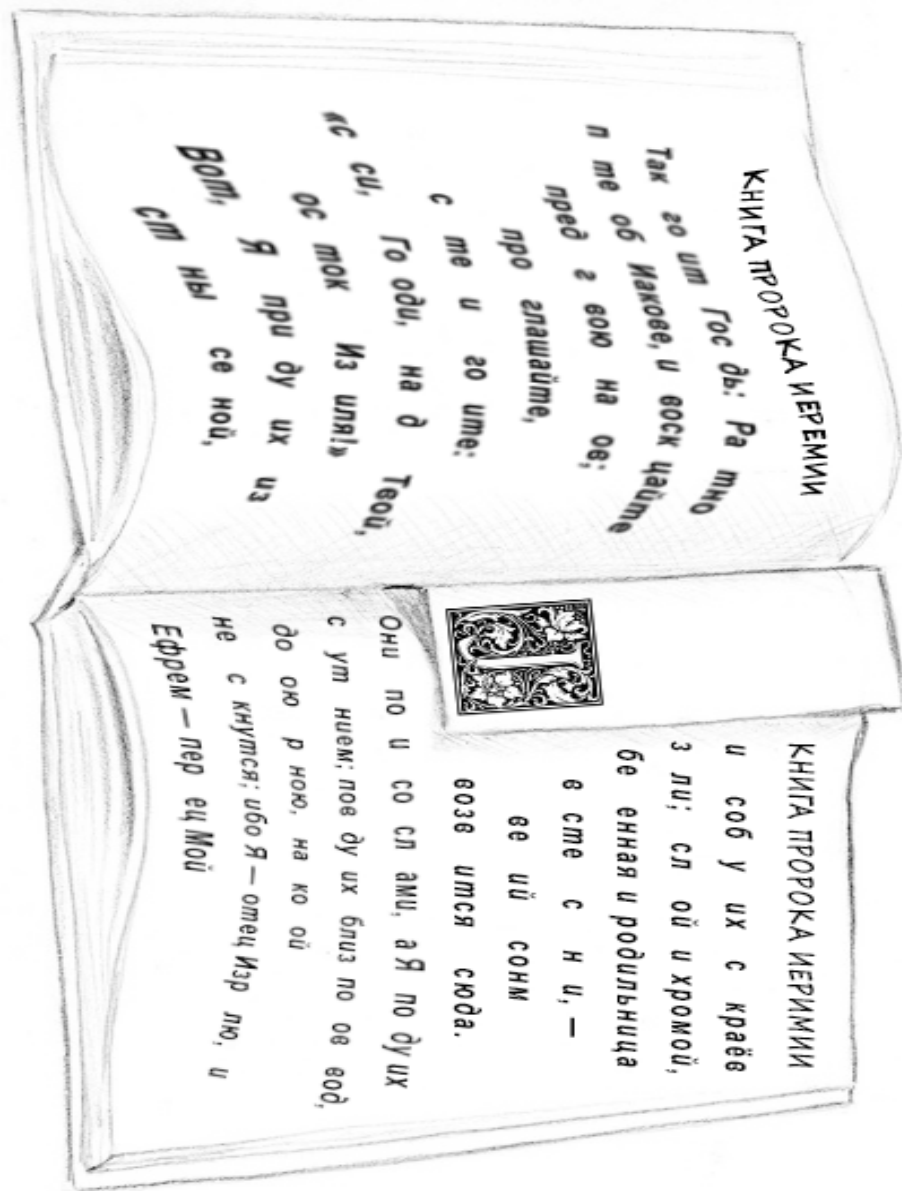 КНИГА ПРОРОКА ИЕРЕМИИ
Так го ит Гос дь: Ра тно
п те об Иакове, и воск цайте
пред г вою на ов;
про глашайте,
с те и го ите:
«с си, Го оди, на д Твой,
ос ток Из иля!»
Вот, Я при ду их из
ст ны се ной,
КНИГА ПРОРОКА ИЕРИМИИ
и соб у их с краёв
з ли; сл ой и хромой,
бе енная и родильница
в сте с н и, —
ве ий сонм
возв ится сюда.
Они по и со сл ами, а Я по ду их
с ут нием; пов ду их близ по ов вод,
до ою р ною, на ко ой
не с кнутся; ибо Я — отец Изр лю, и
Ефрем — пер ец Мой